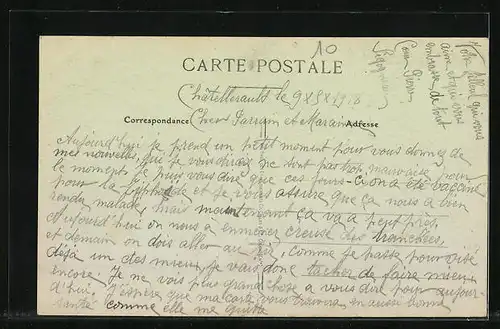 10
CARTE POSTALE
Châtellerault le 9 X 1918
Correspondance Adresse
Chers Parrain et Marraine
Aujourd'hui je prend un petit moment pour vous donner de
mes nouvelles, qui je vous dirai ne sont pas trop mauvaise pour
le moment, je peux vous dire que ces jours-ci on a été vacciné
pour la et je vous assure que ça nous a bien
rendu malade, mais maintenant ça va à peu près.
Aujourd'hui on nous a emmener creuse des tranchées,
et demain on dois aller au tir, comme je passe pour
déjà un des mieux je vais donc tacher de faire mieux
encore. Je ne vois plus grand chose a vous dire pour aujour-
d'hui. J'espère que ma carte vous trouvera en aussi bonne
santé comme elle me quitte
Votre filleul qui vous
aime et qui vous
embrasse de tout
coeur Pierre